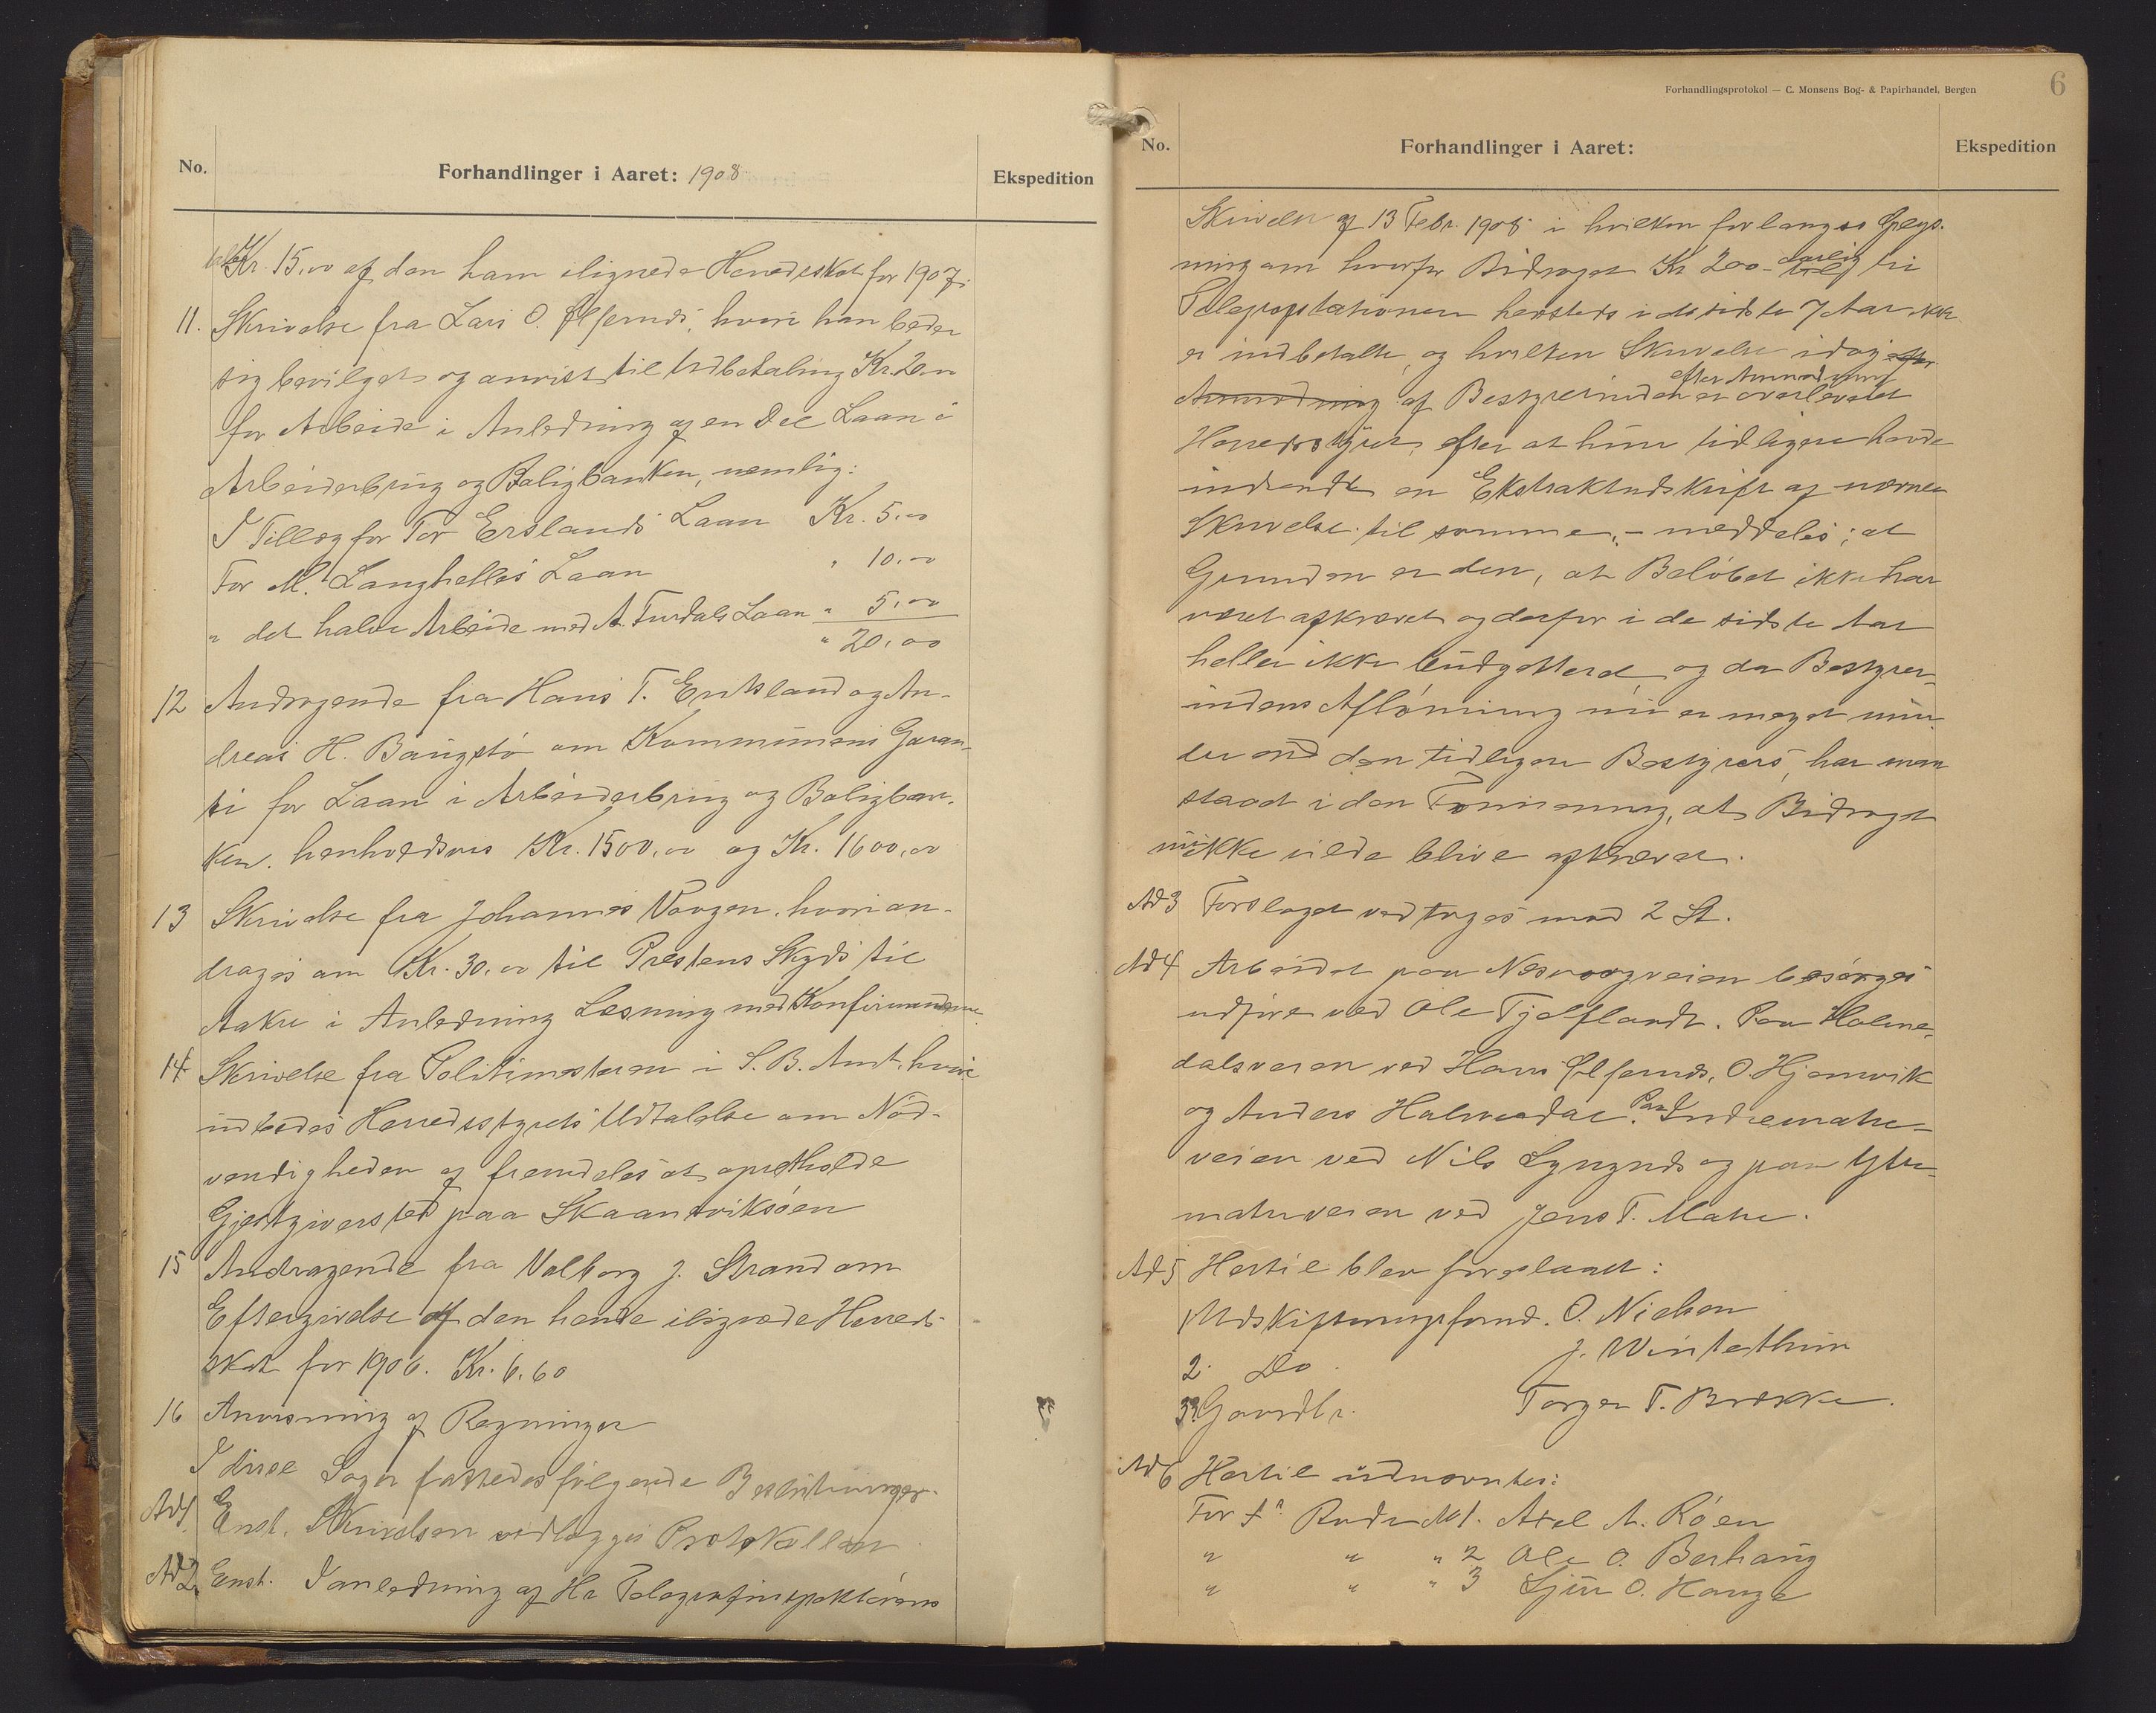 No. Forhandlinger i Aaret: 1908 Ekspedition
Kr. 15,00 af den ham ilignede Herredsskat for 1907.
11. Skrivelse fra Lars O. Ølfernæs, hvori han beder
sig bevilget og anvist til Udbetaling Kr. 20,00
for Arbeide i Anledning af en Del Laan i
Arbeiderbrug og Boligbanken, nemlig:
I Tillæg for Tor Erslands Laan Kr. 5,00
For M. Langhelles Laan " 10,00
" det halve Arbeide med A. Furdals Laan " 5,00
" 20,00
12 Andragende fra Hans T. Eriksland og An-
dreas H. Baugstø om Kommunens Garan-
ti for Laan i Arbeiderbrug og Boligban-
ken. henholdsvis Kr. 1500,00 og Kr. 1600,00
13 Skrivelse fra Johannes Vaagen, hvori an-
drages om Kr. 30,00 til Prestens Skyds til
Aakre i Anledning Læsning med Konfirmanderne
14 Skrivelse fra Politimesteren i S. B. Amt, hvori
indbedes Herredsstyrets Udtalelse om Nød-
vendigheden af fremdeles at opretholde
Gjestgiversted paa Skaanevikøen
15 Andragende fra Valborg J. Strand om
Eftergivelse af den hende ilignede Herreds-
skat for 1906. Kr. 6,60
16 Anvisning af Regninger
I disse Sager fattedes følgende Beslutninger.
Ad 1. Enst. Skrivelsen vedlægges Protokollen
Ad 2. Enst. I anledning af Hr Telegrafinspektørens
Forhandlingsprotokol — C. Monsens Bog- & Papirhandel, Bergen 6
No. Forhandlinger i Aaret: Ekspedition
Skrivelse af 13 Febr. 1908 i hvilken forlanges Oplys-
ning om hvorfor Bidraget Kr 200- aarlig til
Telegrafstationen hersteds i de sidste 7 Aar ikke
er indbetalt, og hvilken Skrivelse idag efter
Anmodning af Bestyrerinden efter Anmodning er overleveret
Herredsstyret, efter at hun tidligere havde
indsendt en Ekstraktudskrift af nævnte
Skrivelse til samme, - meddeles; at
Grunden er den, at Beløbet ikke har
været afkrævet og derfor i de sidste Aar
heller ikke budgetterd og da Bestyrer-
indens Aflønning nu er meget min-
dre end den tidligere Bestyrers, har man
staaet i den Formening, at Bidraget
nu ikke vilde blive afkrævet.
Ad 3 Forslaget vedtoges mod 2 St.
Ad 4 Arbeidet paa Nesvaagveien besørges
udført ved Ole Tjelflandt. Paa Holme-
dalsveien ved Hans Ølfernæs, O. Hjemvik
og Anders Holmedal. Paa Indrematre-
veien ved Nils Lyngnæs og paa Ytre-
matreveien ved Jens T. Matre.
Ad 5 Hertil blev foreslaaet:
1 Udskiftningsformd. O. Nielsen
2. Do. J. Wintethun
3. Gaardbr. Torger T. Brække.
Ad 6 Hertil udnævntes:
For 1ste Rode No 1. Axel A. Røen
" " " 2 Ole O. Berhaug
" " " 3 Sjur O. Hauge